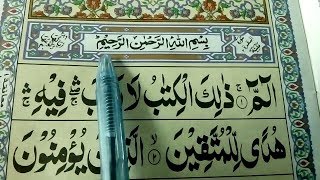 بِسْمِ اللهِ الرَّحْمٰنِ الرَّحِيْمِ
الٓمّٓ ۚ ۝۱ ذٰلِكَ الْكِتٰبُ لَا فِيْهِ ۛ
هُدًى لِّلْمُتَّقِيْنَ ۙ ۝۲ يُؤْمِنُوْنَ